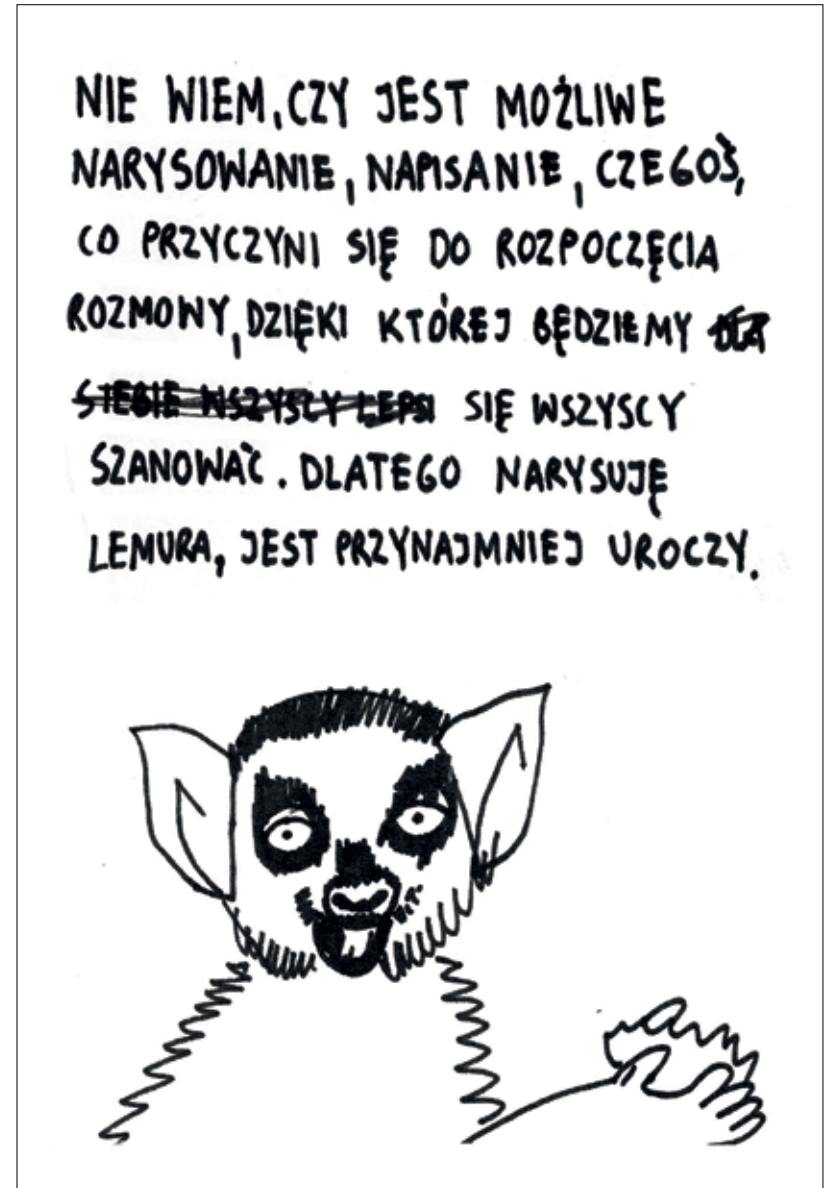 NIE WIEM, CZY JEST MOŻLIWE
NARYSOWANIE, NAPISANIE, CZEGOŚ,
CO PRZYCZYNI SIĘ DO ROZPOCZĘCIA
ROZMOWY, DZIĘKI KTÓREJ BĘDZIEMY DLA
SIEBIE WSZYSCY LEPSI SIĘ WSZYSCY
SZANOWAĆ. DLATEGO NARYSUJĘ
LEMURA, JEST PRZYNAJMNIEJ UROCZY.